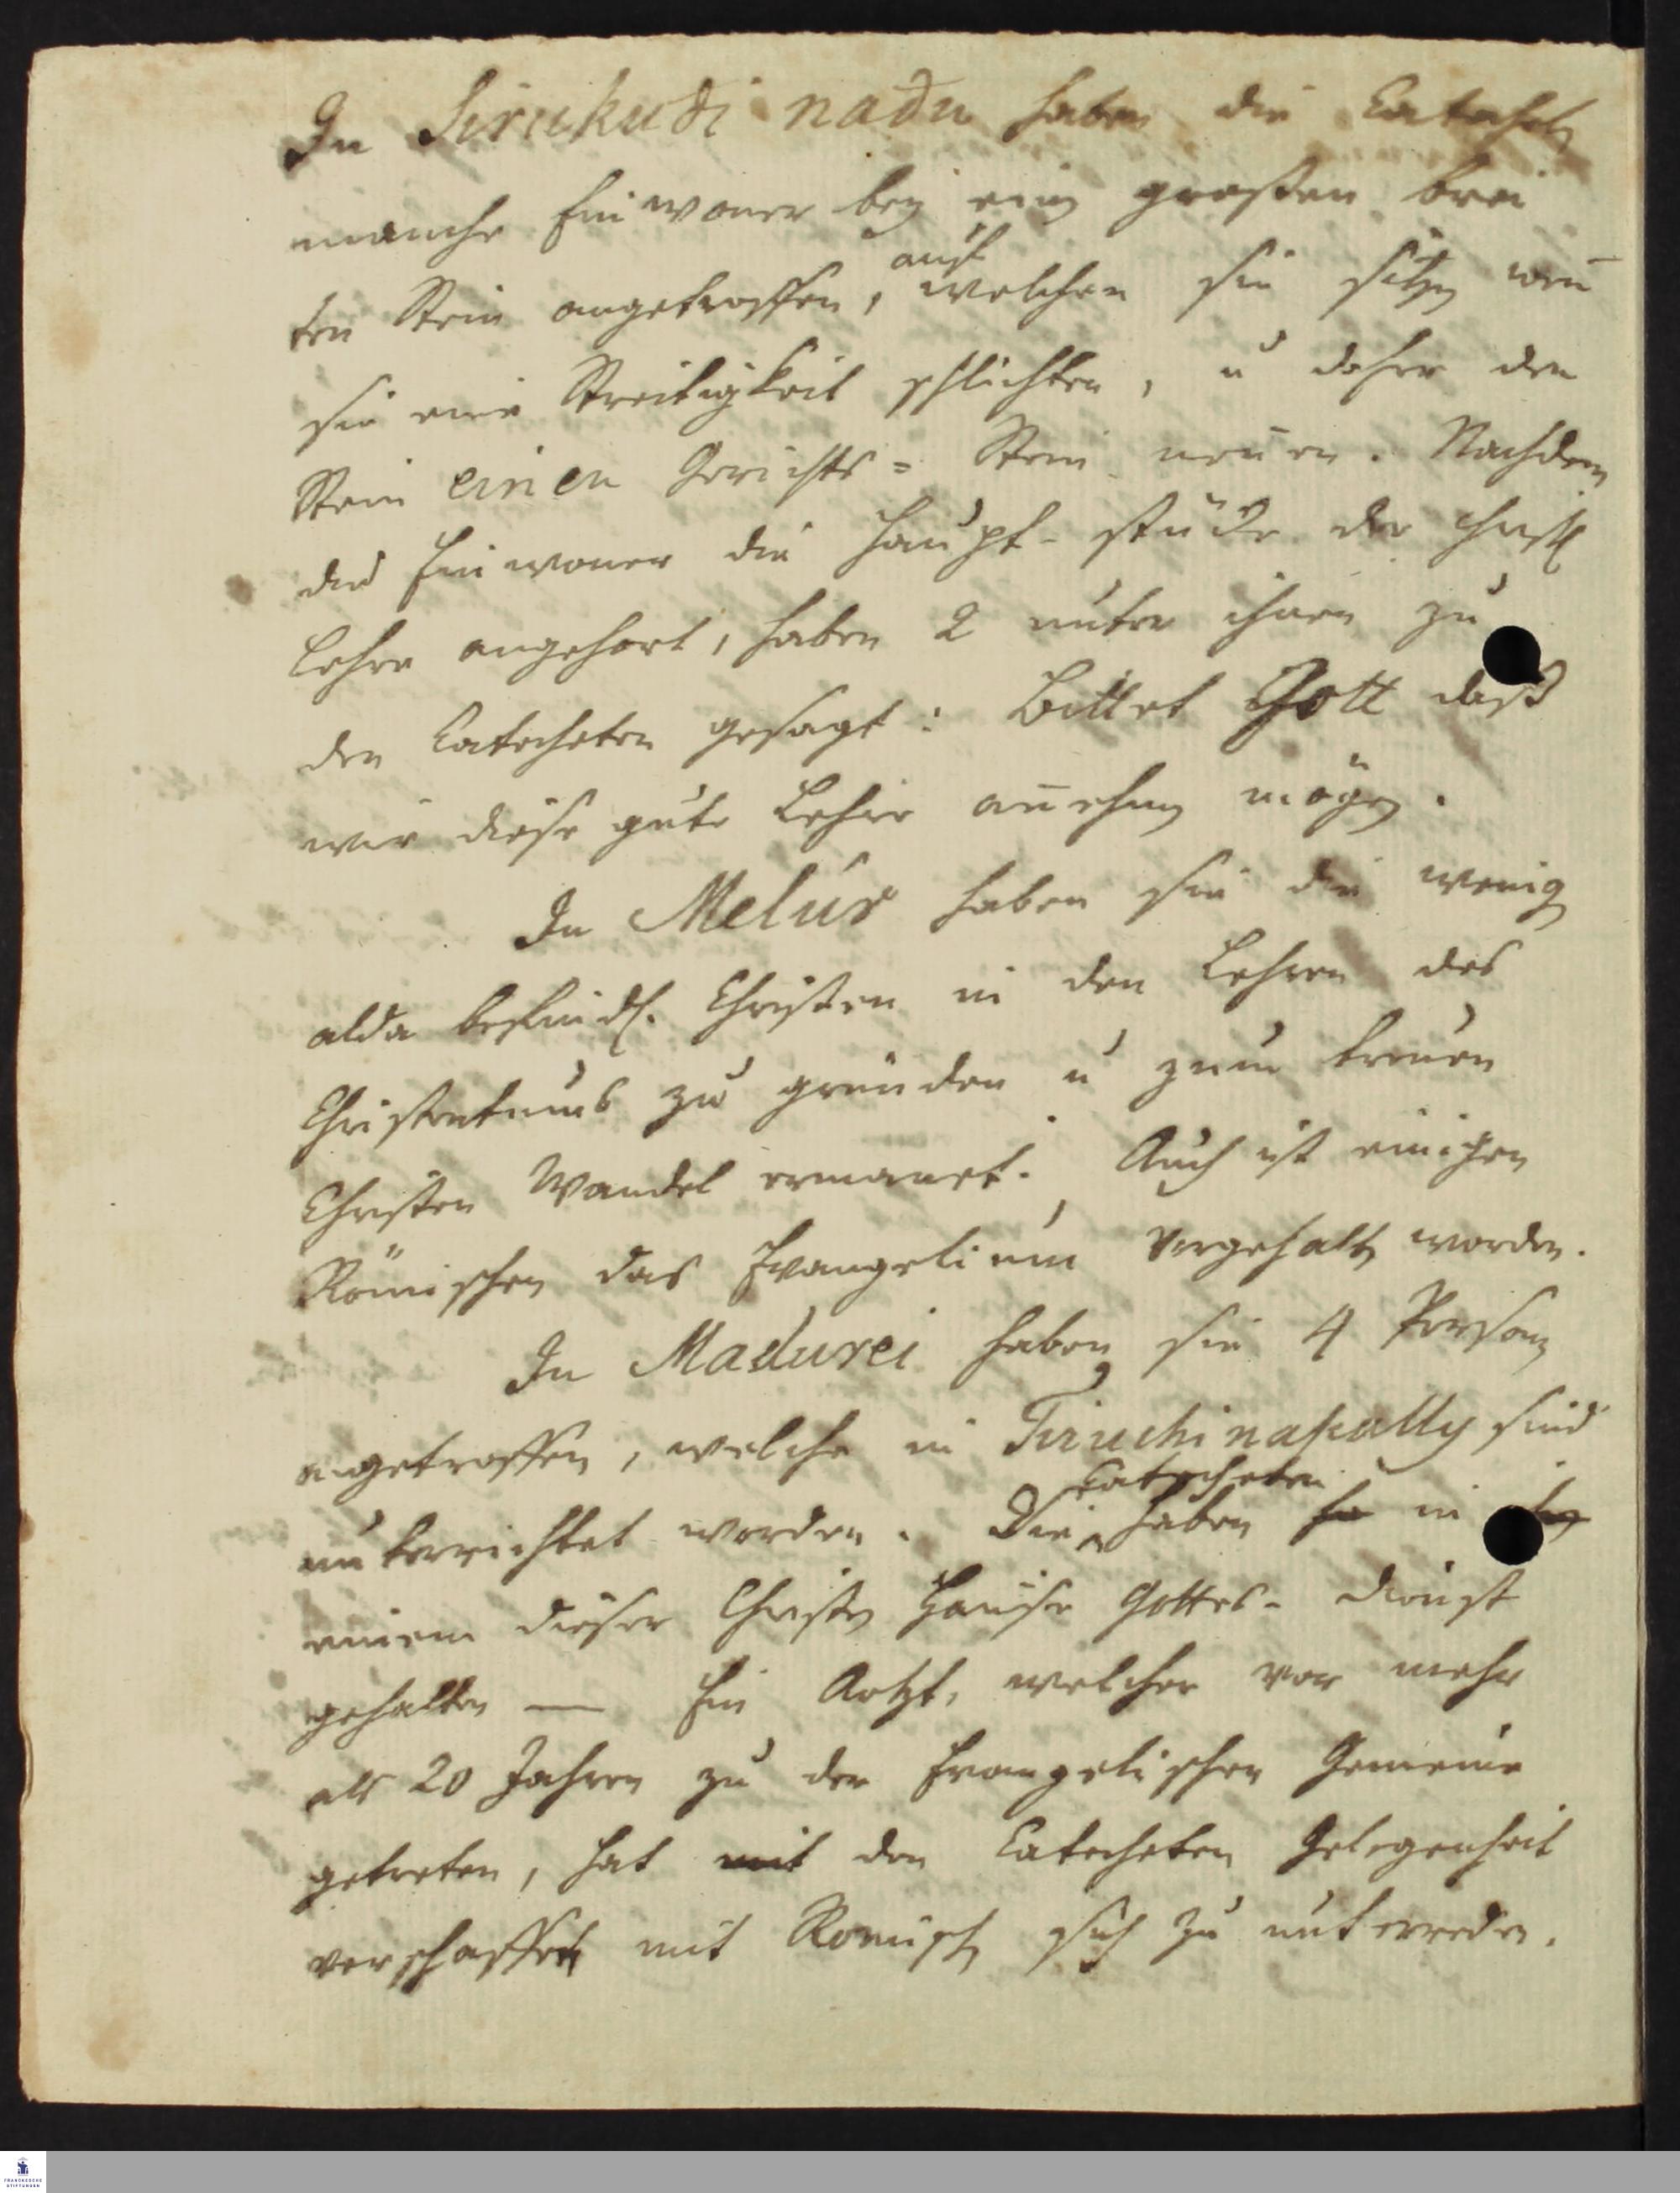 In Sirukudi nadu haben die Catecheten
manche Einwoner bey einen grossen brei
ten Stein angetroffen, auf welchen sie sitzen wen̄
sie eine Streitigkeit schlichten, u daher den
Stein einen Gerichts= Stein nen̄en. Nachdem
die Einwoner die Haupt-stücke der christl
Lehre angehort, haben 2 unter ihnen zu
den Catecheten gesagt: Bittet Gott dass
wir diese gute Lehre an̄ehmen mögen.
In Melúr haben sie die wenig
alda befindl. Christen in den Lehren des
Christentums zu gründen u zum treuen
Christen Wandel ermanet. Auch ist einigen
Römischen das Evangelium vorgehalten worden.
In Madurei haben sie 4 Personen
angetroffen, welche in Tiruchinapally sind
unterrichtet worden. Die Catecheten haben in
einem dieser Christen Hause Gottes-dienst
gehalten — Ein Artzt, welcher vor mehr
als 20 Jahren zu der Evangelischen Gemeine
getreten, hat mit den Catecheten Gelegenheit
verschaffet mit Romischen sich zu unterreden.
FRANCKESCHE
STIFTUNGEN